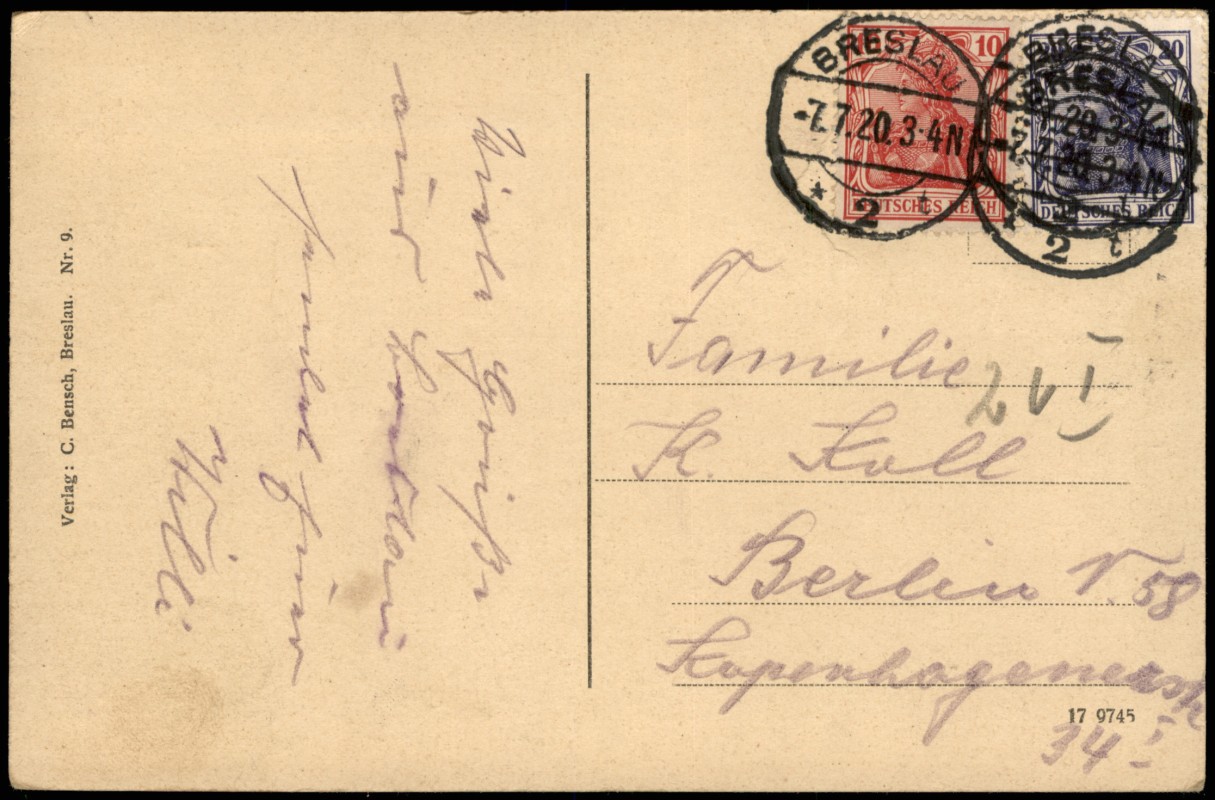 Verlag: C. Bensch, Breslau. Nr. 9.
Viele Grüße
aus Breslau
sendet Euer
Willi
10
DEUTSCHES REICH
20
DEUTSCHES REICH
BRESLAU
-7.7.20.3-4N
* 2 t
BRESLAU
BRESLAU
-7.7.20.3-4N
* 2 t
Familie
2 V I
K. Koll
Berlin N. 58
Kopenhagenerstr
34 I
17 9745